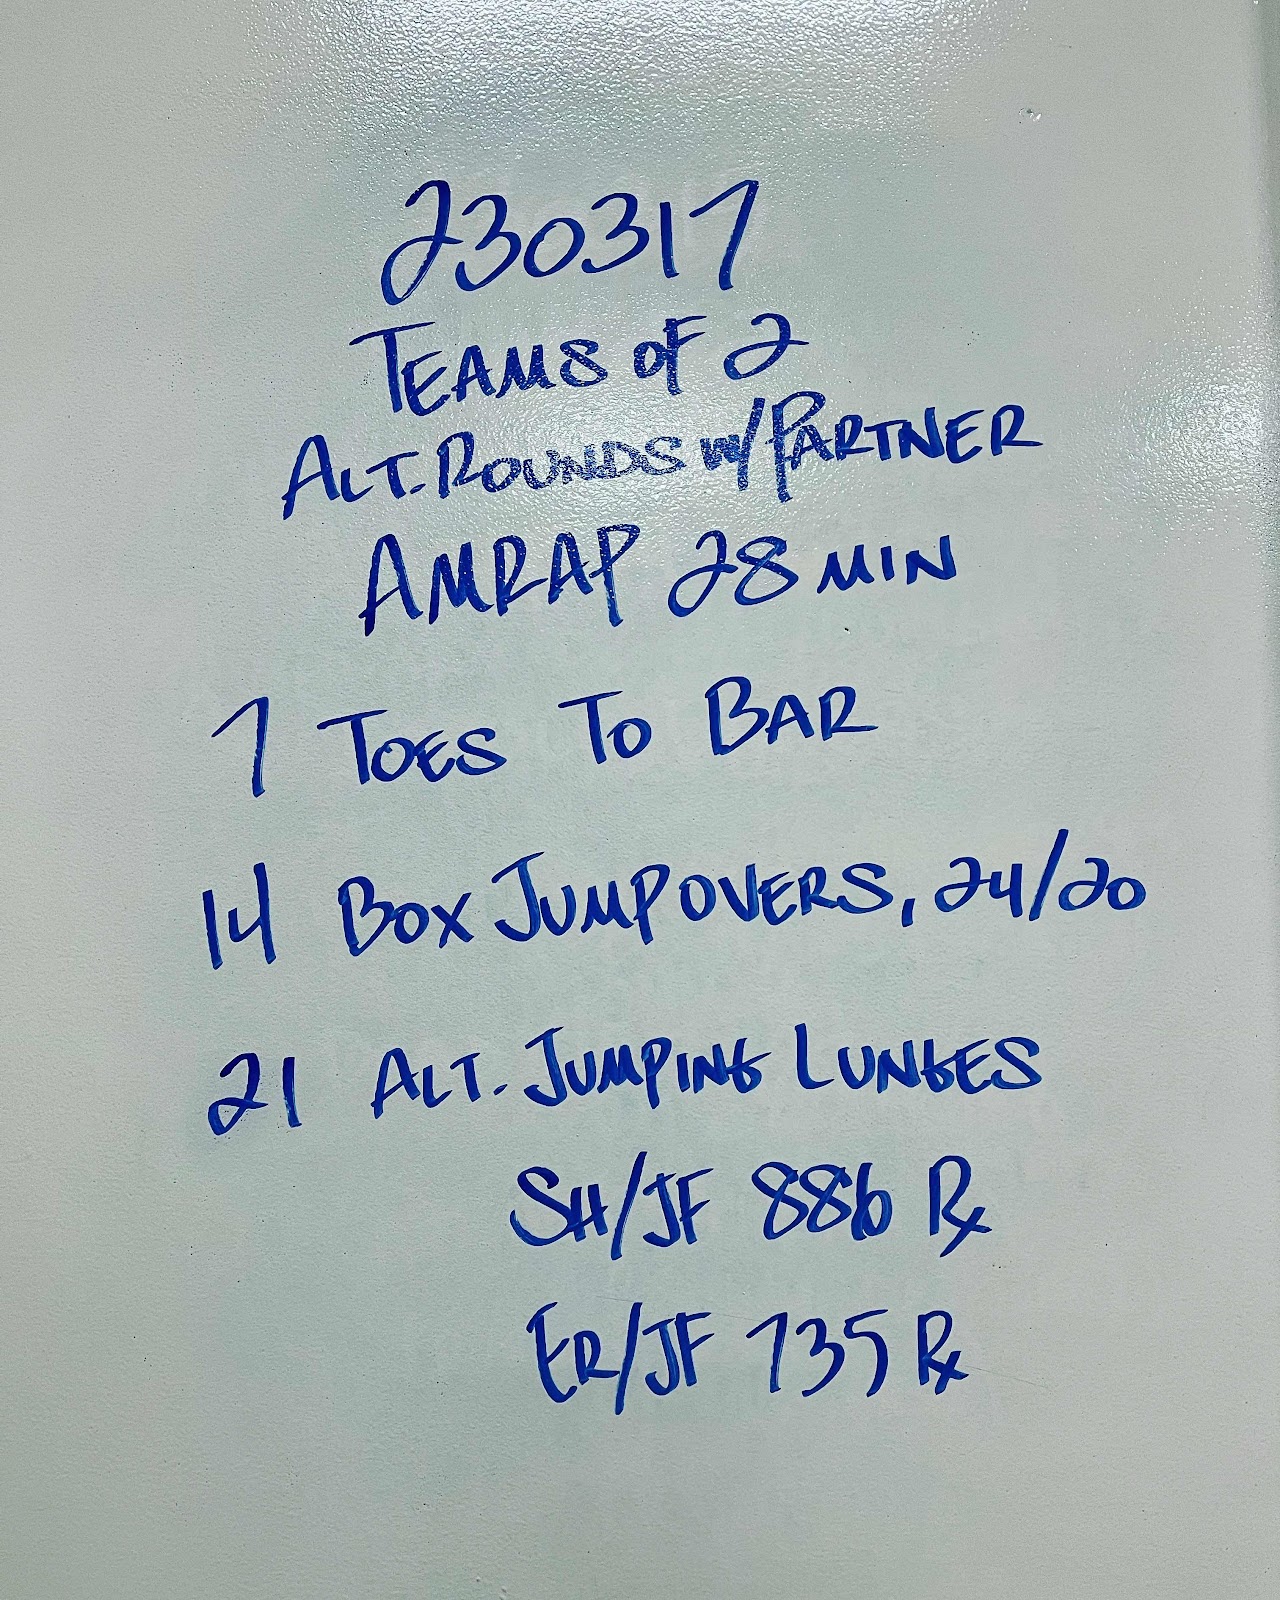 230317
TEAMS OF 2
ALT. ROUNDS W/ PARTNER
AMRAP 28 MIN
7 TOES TO BAR
14 BOX JUMP OVERS, 24/20
21 ALT. JUMPING LUNGES
SH/JF 886 Rx
ER/JF 735 Rx